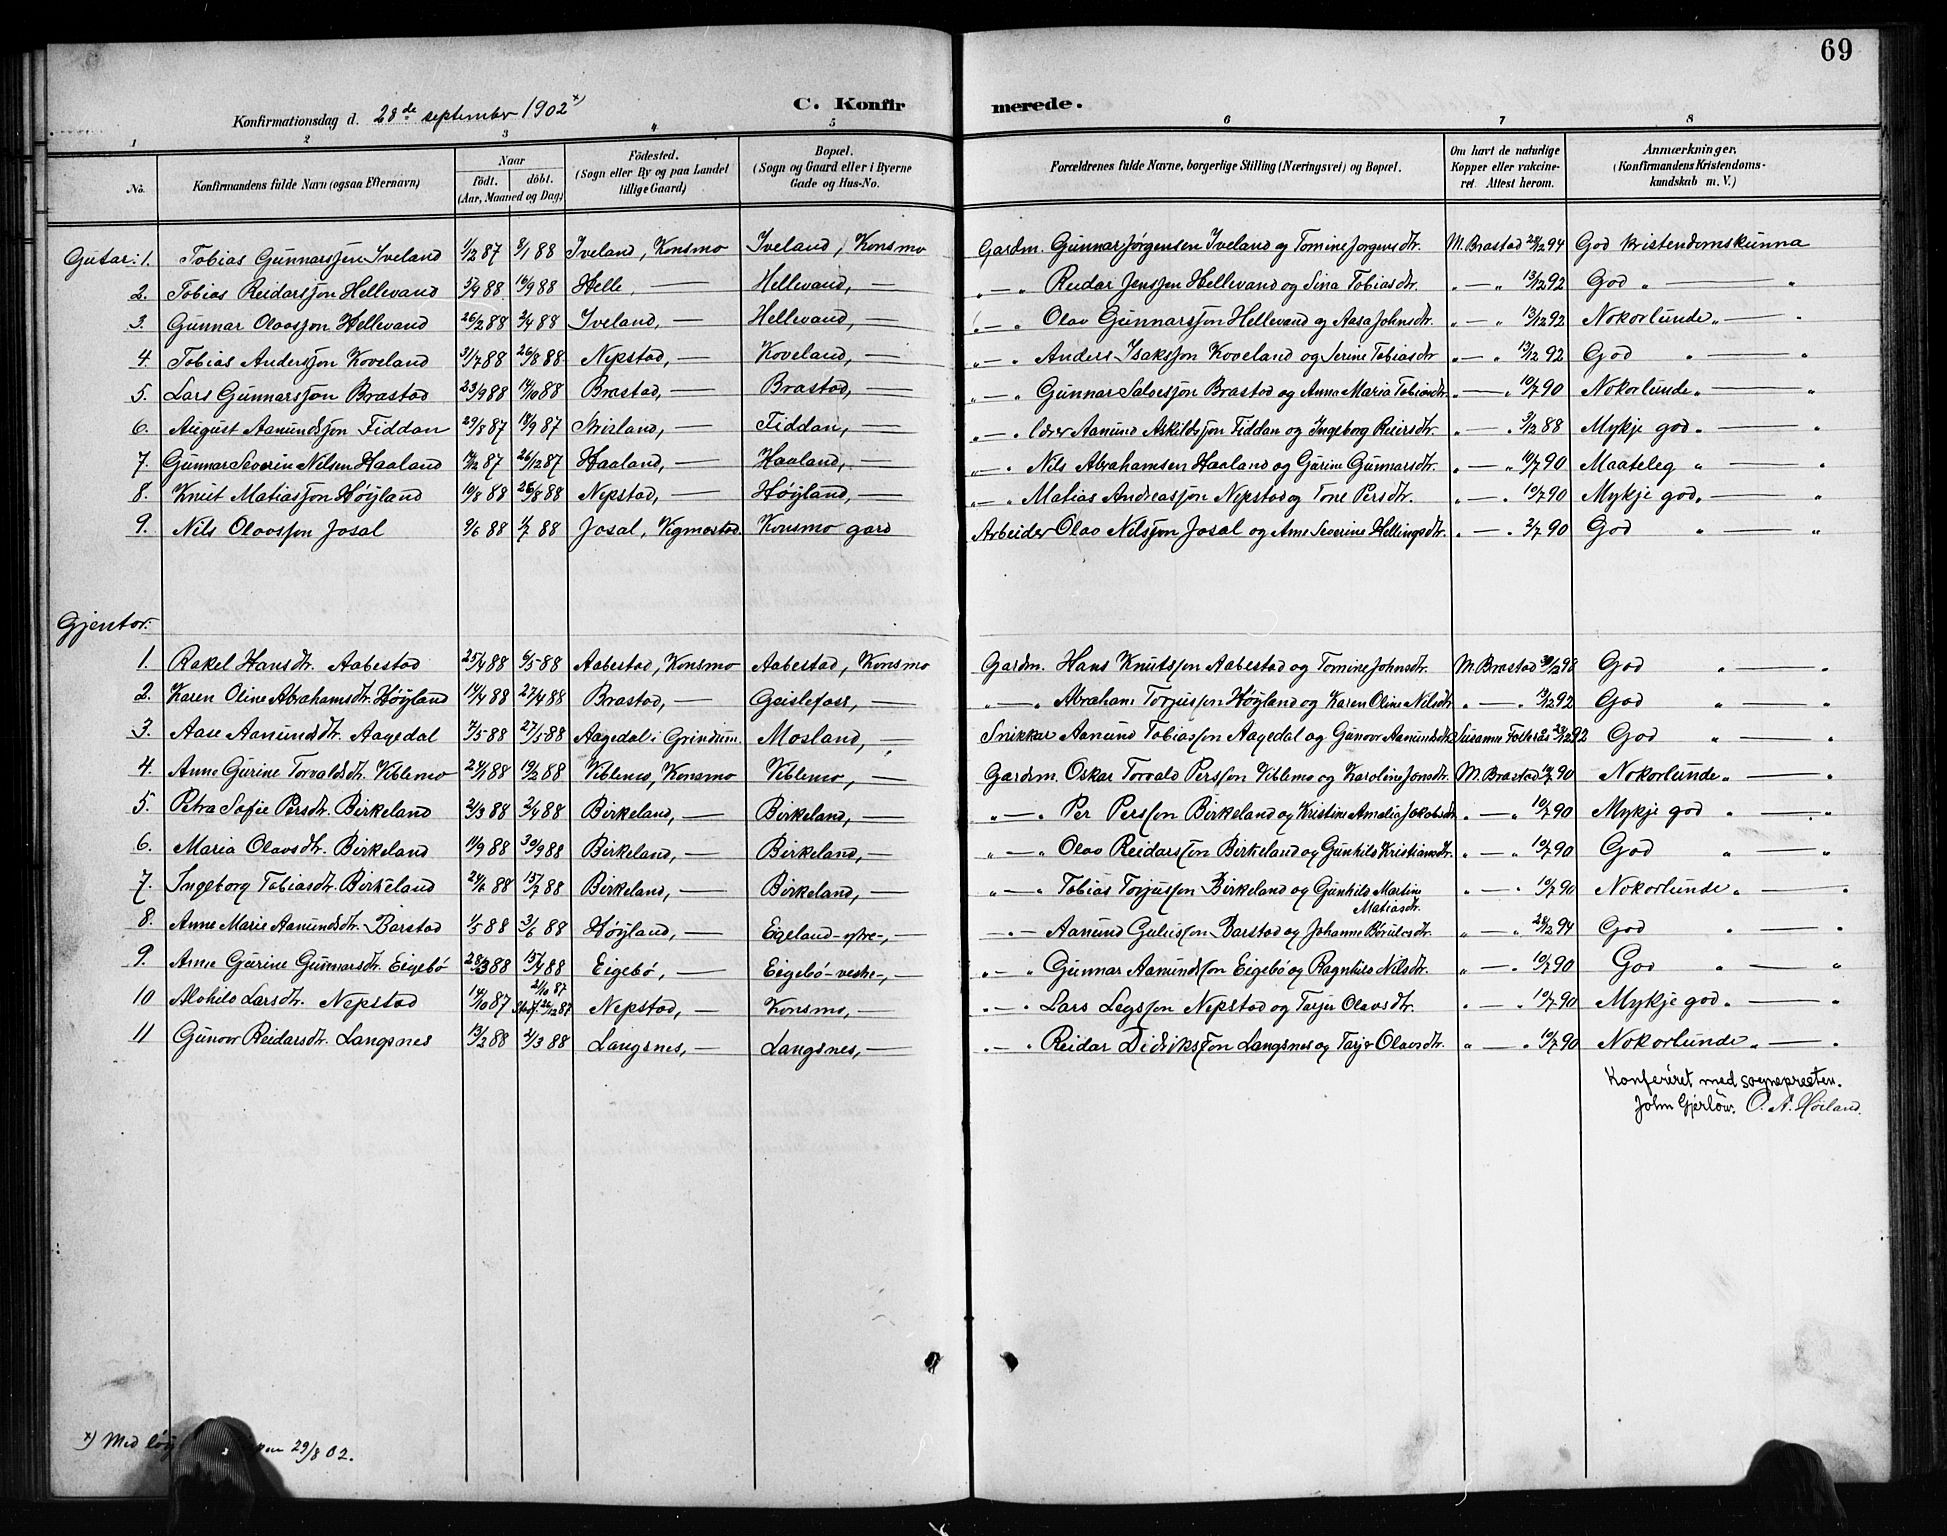 69
Konfirmationsdag d. 28de september 1902 x)
C. Konfirmerede.
1 2 3 4 5 6 7 8
No. Konfirmandens fulde Navn (ogsaa Efternavn) Naar födt. döbt. (Aar, Maaned og Dag) Födested. (Sogn eller By og paa Landet tillige Gaard) Bopæl. (Sogn og Gaard eller i Byerne Gade og Hus-No. Forældrenes fulde Navne, borgerlige Stilling (Næringsvei) og Bopæl. Om havt de naturlige Kopper eller vakcineret. Attest herom. Anmærkninger. (Konfirmandens Kristendomskundskab m. V.)
Gutar: 1. Tobias Gunnarssøn Iveland 1/12 87 8/1 88 Iveland, Konsmo Iveland, Konsmo Gardm. Gunnar Jørgensen Iveland og Tomine Jørgensdtr. M. Brastad 28/2 94 God kristendomskunna
2. Tobias Reidarssøn Hellevand 5/9 88 16/9 88 Helle, — Hellevand, — „ — „ Reidar Jenssøn Hellevand og Sina Tobiasdtr. „ — „ 13/12 92 God „ — „
3. Gunnar Olavssøn Hellevand 26/2 88 2/4 88 Iveland, — Hellevand, — „ — „ Olav Gunnarssøn Hellevand og Aasa Johnsdtr. „ — „ 13/12 92 Nokorlunde „ — „
4. Tobias Anderssøn Koveland 31/7 88 26/8 88 Nepstad, — Koveland, — „ — „ Anders Isakssøn Koveland og Serine Tobiasdtr „ — „ 13/12 92 God „ — „
5. Lars Gunnarssøn Brastad 23/9 88 14/10 88 Brastad, — Brastad, — „ — „ Gunnar Salvessøn Brastad og Anna Maria Tobiasdtr „ — „ 10/7 90 Nokorlunde „ — „
6. August Aanundssøn Fiddan 29/8 87 18/9 87 — Fiddan, — „ — „ Aanund Askildssøn Fiddan og Ingeborg Reiersdtr. „ — „ 3/12 88 Mykje god „ — „
7. Gunnar Severin Nilsen Haaland 14/12 87 26/12 87 Haaland, — Haaland, — „ — „ Nils Abrahamsen Haaland og Gurine Gunnarsdtr. „ — „ 10/7 90 Maateleg „ — „
8. Knut Matiassøn Høyland 10/8 88 26/8 88 Nepstad, — Høyland, — „ — „ Matias Andreassøn Nepstad og Tone Persdtr. „ — „ 10/7 90 Mykje god „ — „
9. Nils Olavssøn Josal 9/6 88 1/7 88 Josal, Vigmostad Konsmo gard Arbeider Olav Nilssøn Josal og Ane Severine Hellingsdtr. „ — „ 2/7 90 God „ „
Gjentor:
1. Rakel Hansdtr. Aabestad 25/4 88 6/5 88 Aabestad, Konsmo Aabestad, Konsmo Gardm. Hans Knutssøn Aabestad og Tomine Johnsdtr. M. Brastad 30/12 98 God „ — „
2. Karen Oline Abrahamsdtr. Høyland 14/4 88 27/4 88 Brastad, — Geislefoss, — „ — „ Abraham Torjussøn Høyland og Karen Oline Nilsdtr „ — „ 13/12 92 God „ — „
3. Aase Aanundsdtr. Aagedal 7/5 88 27/5 88 Aagedal i Grindum Mosland, — Snikkar Aanund Tobiassøn Aagedal og Gunvor Aanundsdtr Susanne 92 God „ — „
4. Anne Gurine Torvaldsdtr. Viblemo 24/1 88 19/2 88 Viblemo, Konsmo Viblemo, — Gardm. Oskar Torvald Perssøn Viblemo og Karoline Jonsdtr. M. Brastad 10/7 90 Nokorlunde „ — „
5. Petra Sofie Persdtr. Birkeland 2/3 88 2/4 88 Birkeland, — Birkeland, — „ — „ Per Perssøn Birkeland og Kristine Amalia Jakobsdtr „ — „ 10/7 90 Mykje god „ — „
6. Maria Olavsdtr. Birkeland 11/9 88 30/9 88 Birkeland, — Birkeland, — „ — „ Olav Reidarssøn Birkeland og Gunhild Kristiansdtr. „ — „ 10/7 90 God „ — „
7. Ingeborg Tobiasdtr. Birkeland 24/6 88 15/7 88 Birkeland, — Birkeland, — „ — „ Tobias Torjussøn Birkeland og Gunhild Martine Matiasdtr. „ — „ 10/7 90 Nokorlunde „ — „
8. Anne Marie Aanundsdtr. Barstad 1/5 88 3/6 88 Høyland, — Eigeland-østre-, — „ — Aanund Barstad og Johanne „ — „ 28/2 94 God „ „
9. Anne Gurine Gunnarsdtr. Eigebø 28/3 88 15/4 88 Eigebø, — Eigebø-vestre-, — „ — „ Gunnar Aanundssøn Eigebø og Ragnhild Nilsdtr. „ — „ 10/7 90 God „ — „
10 Alvhild Larsdtr. Nepstad 14/10 87 21/10 87 Stadf. 26/12 87 Nepstad, — Konsmo, — „ — „ Lars Nepstad og Tarjer Olavsdtr. „ — „ 10/7 90 Mykje god „ — „
11 Gunvor Reidarsdtr. Langsnes 13/2 88 4/3 88 Langsnes, — Langsnes, — „ — „ Reidar Didrikssøn Langsnes og Tarjer Olavsdtr. „ — „ 10/7 90 Nokorlunde „ — „
Konfereret med sognepresten.
John Gjerløw. O. A. Høiland.
x) Med 29/8 02.